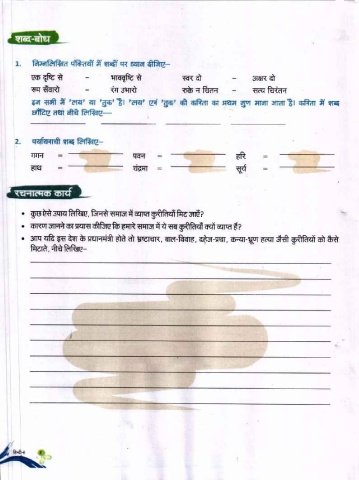 शब्द-बोध
1. निम्नलिखित पंक्तियों में शब्दों पर ध्यान दीजिए–
एक दृष्टि से – भाववृष्टि से स्वर दो – अक्षर दो
रूप सँवारो – रंग उभारो रुके न चिंतन – सत्य चिरंतन
इन सभी में 'लय' या 'तुक' है। 'लय' एवं 'तुक' की कविता का प्रथम गुण माना जाता है। कविता में शब्द
छाँटिए तथा नीचे लिखिए—
2. पर्यायवाची शब्द लिखिए–
गगन = पवन = हरि =
हाथ = चंद्रमा = सूर्य =
रचनात्मक कार्य
• कुछ ऐसे उपाय लिखिए, जिनसे समाज में व्याप्त कुरीतियाँ मिट जाएँ?
• कारण जानने का प्रयास कीजिए कि हमारे समाज में ये सब कुरीतियाँ क्यों व्याप्त हैं?
• आप यदि इस देश के प्रधानमंत्री होते तो भ्रष्टाचार, बाल-विवाह, दहेज-प्रथा, कन्या-भ्रूण हत्या जैसी कुरीतियों को कैसे
मिटाते, नीचे लिखिए–